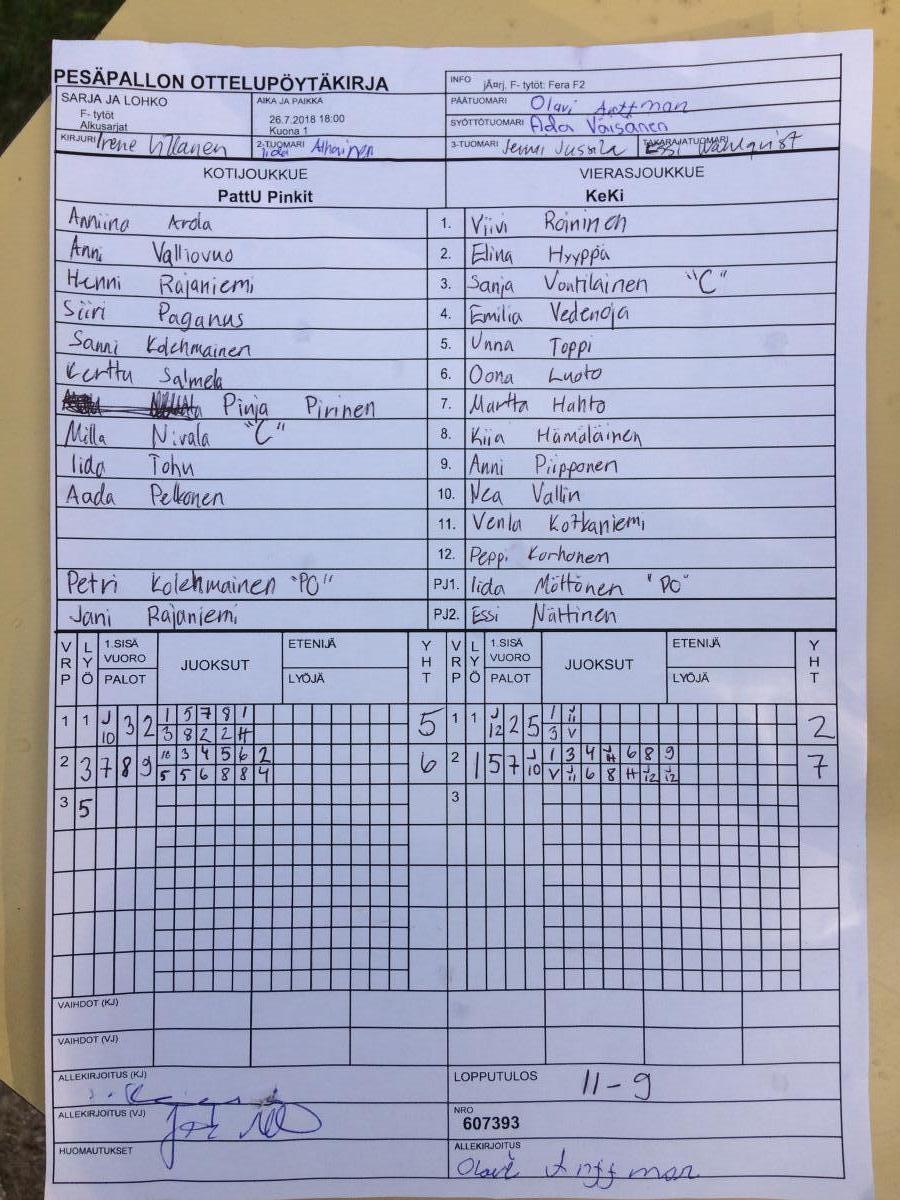 PESÄPALLON OTTELUPÖYTÄKIRJA
INFO jÄ¤rj, F- tytöt: Fera F2
SARJA JA LOHKO
F- tytöt
Alkusarjat
AIKA JA PAIKKA
26.7.2018 18:00
Kuona 1
PÄÄTUOMARI Olavi
SYÖTTÖTUOMARI Ada Väisänen
KIRJURI Irene
2-TUOMARI Iida
3-TUOMARI Jenni Jussila
TAKARAJATUOMARI Essi Wahlqvist
KOTIJOUKKUE VIERASJOUKKUE
PattU Pinkit KeKi
Anniina Arola 1. Viivi Roininen
Anni Valliovuo 2. Elina Hyyppä
Henni Rajaniemi 3. Sanja Vontilainen "C"
Siiri Paganus 4. Emilia Vedenoja
Sanni Kolehmainen 5. Unna Toppi
Kerttu Salmela 6. Oona Luoto
Pinja Pirinen 7. Martta Hahto
Milla Nivala "C" 8. Kiia Hämäläinen
Iida Tohu 9. Anni Piipponen
Aada Pelkonen 10. Nea Vallin
11. Venla Kotkaniemi
12. Peppi Korhonen
Petri Kolehmainen "PO" PJ1. Iida Möttönen "PO"
Jani Rajaniemi PJ2. Essi Nättinen
VRP LYÖ 1.SISÄ VUORO PALOT JUOKSUT ETENIJÄ LYÖJÄ YHT VRP LYÖ 1.SISÄ VUORO PALOT JUOKSUT ETENIJÄ LYÖJÄ YHT
1 1 J 10 3 2 1 5 7 8 1 5 1 1 J 12 2 5 1 J 11 2
3 8 2 2 H 3 V
2 3 7 8 9 10 3 4 5 6 2 6 2 1 5 7 J 10 1 3 4 J H 6 8 9 7
5 5 6 8 8 4 V J 11 6 8 H J 12 J 12
3 5 3
VAIHDOT (KJ)
VAIHDOT (VJ)
ALLEKIRJOITUS (KJ) LOPPUTULOS 11-9
ALLEKIRJOITUS (VJ) NRO
607393
HUOMAUTUKSET ALLEKIRJOITUS
Olavi